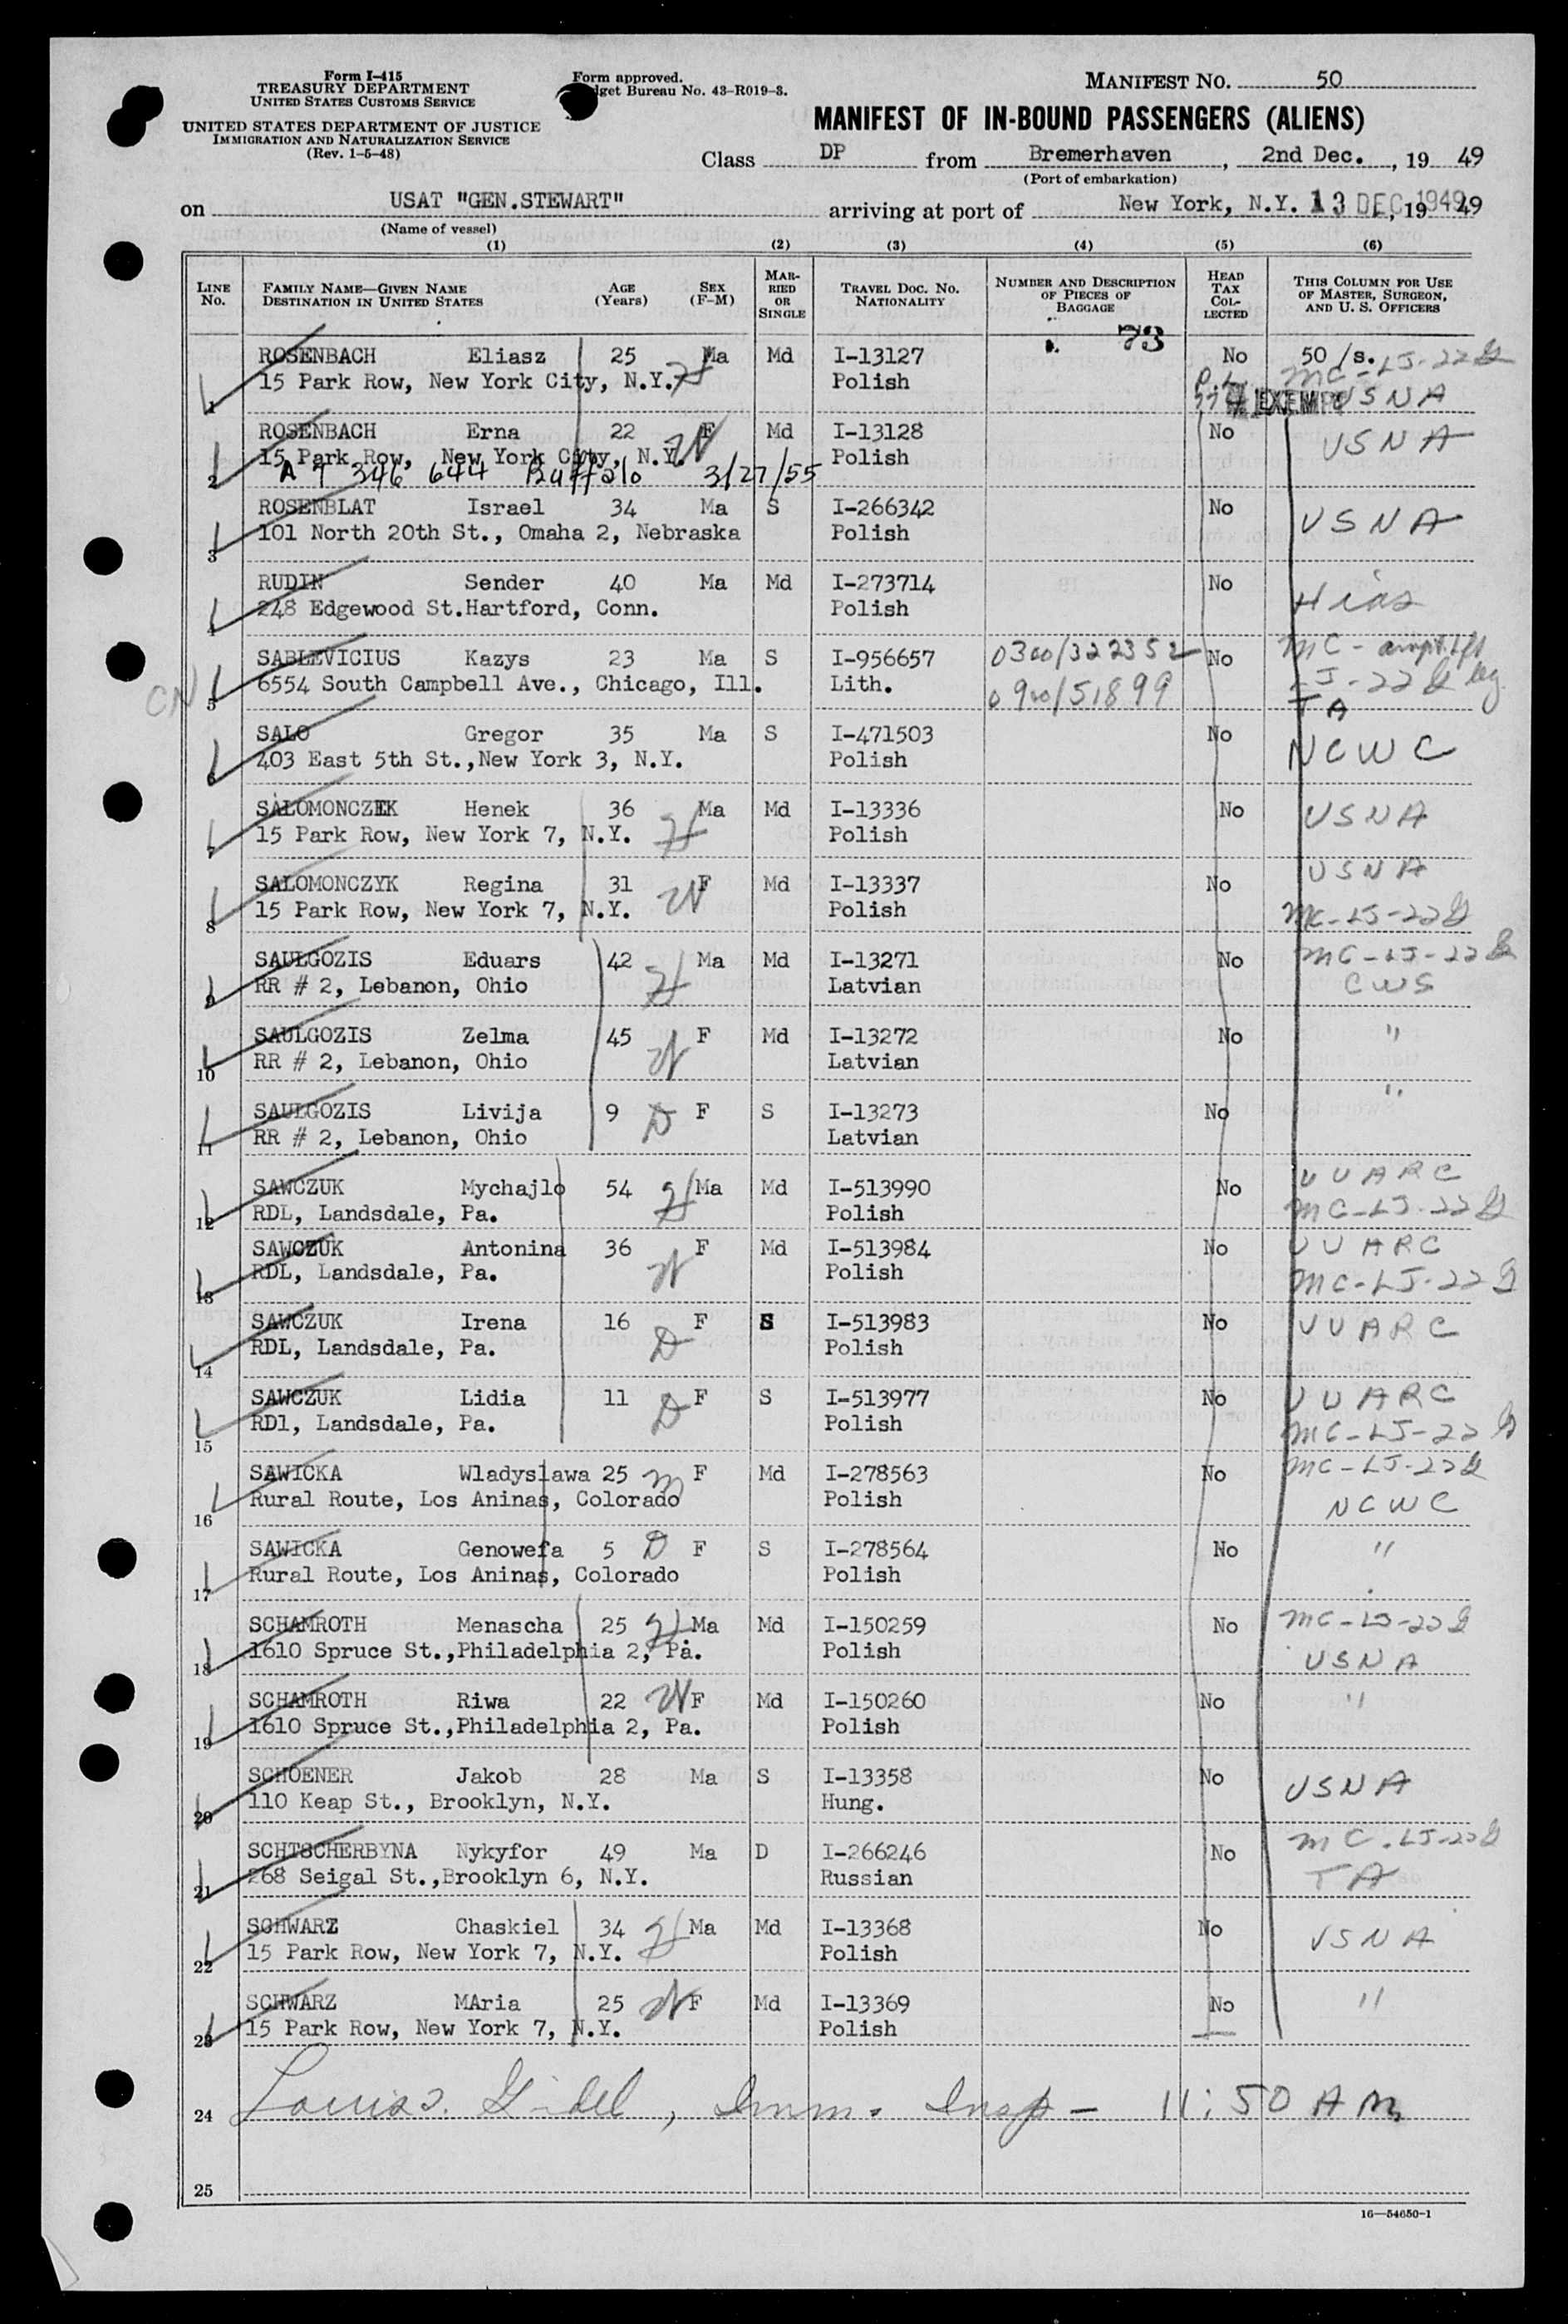 Form I-415
TREASURY DEPARTMENT
UNITED STATES CUSTOMS SERVICE
UNITED STATES DEPARTMENT OF JUSTICE
IMMIGRATION AND NATURALIZATION SERVICE
(Rev. 1-5-48)
Form approved.
dget Bureau No. 43-R019-3.
MANIFEST NO. 50
MANIFEST OF IN-BOUND PASSENGERS (ALIENS)
Class DP from Bremerhaven, 2nd Dec., 19 49
(Port of embarkation)
on USAT "GEN.STEWART" arriving at port of New York, N.Y. 13 DEC 1949, 19 49
(Name of vessel)
(1) (2) (3) (4) (5) (6)
LINE No. FAMILY NAME—GIVEN NAME DESTINATION IN UNITED STATES AGE (Years) SEX (F-M) MARRIED OR SINGLE TRAVEL DOC. NO. NATIONALITY NUMBER AND DESCRIPTION OF PIECES OF BAGGAGE HEAD TAX COLLECTED THIS COLUMN FOR USE OF MASTER, SURGEON, AND U. S. OFFICERS
73
ROSENBACH Eliasz 25 Ma Md I-13127 No 50 /s. MC-LJ-22
1 15 Park Row, New York City, N.Y. H Polish P.L. EXEMPT USNA
ROSENBACH Erna 22 F Md I-13128 No USNA
15 Park Row, New York City, N.Y. W Polish
2 A 7 346 644 Buffalo 3/27/55
ROSENBLAT Israel 34 Ma S I-266342 No USNA
3 101 North 20th St., Omaha 2, Nebraska Polish
RUDIN Sender 40 Ma Md I-273714 No Hias
4 248 Edgewood St.Hartford, Conn. Polish
SABLEVICIUS Kazys 23 Ma S I-956657 0300/322352 No MC - ampt. lft leg
CN 5 6554 South Campbell Ave., Chicago, Ill. Lith. 0900/51899 LJ-22
TA
SALO Gregor 35 Ma S I-471503 No NCWC
6 403 East 5th St.,New York 3, N.Y. Polish
SALOMONCZEK Henek 36 Ma Md I-13336 No USNA
7 15 Park Row, New York 7, N.Y. H Polish
SALOMONCZYK Regina 31 F Md I-13337 No USNA
8 15 Park Row, New York 7, N.Y. W Polish MC-LJ-22
SAULGOZIS Eduars 42 Ma Md I-13271 No MC-LJ-22
9 RR # 2, Lebanon, Ohio H Latvian CWS
SAULGOZIS Zelma 45 F Md I-13272 No "
10 RR # 2, Lebanon, Ohio W Latvian
SAULGOZIS Livija 9 D F S I-13273 No "
11 RR # 2, Lebanon, Ohio Latvian
SAWCZUK Mychajlo 54 H Ma Md I-513990 No UUARC
12 RDL, Landsdale, Pa. Polish MC-LJ-22
SAWCZUK Antonina 36 F Md I-513984 No UUARC
13 RDL, Landsdale, Pa. W Polish MC-LJ-22
SAWCZUK Irena 16 F S I-513983 No UUARC
14 RDL, Landsdale, Pa. D Polish
SAWCZUK Lidia 11 F S I-513977 No UUARC
15 RD1, Landsdale, Pa. D Polish MC-LJ-22
SAWICKA Wladyslawa 25 M F Md I-278563 No MC-LJ-22
16 Rural Route, Los Aninas, Colorado Polish NCWC
SAWICKA Genowefa 5 D F S I-278564 No "
17 Rural Route, Los Aninas, Colorado Polish
SCHAMROTH Menascha 25 H Ma Md I-150259 No MC-LJ-22
18 1610 Spruce St.,Philadelphia 2, Pa. Polish USNA
SCHAMROTH Riwa 22 W F Md I-150260 No "
19 1610 Spruce St.,Philadelphia 2, Pa. Polish
SCHOENER Jakob 28 Ma S I-13358 No USNA
20 110 Keap St., Brooklyn, N.Y. Hung.
SCHTSCHERBYNA Nykyfor 49 Ma D I-266246 No MC-LJ-22
21 268 Seigal St.,Brooklyn 6, N.Y. Russian TA
SCHWARZ Chaskiel 34 H Ma Md I-13368 No USNA
22 15 Park Row, New York 7, N.Y. Polish
SCHWARZ MAria 25 W F Md I-13369 No "
23 15 Park Row, New York 7, N.Y. Polish
24 Louis , Imm. Insp - 11:50 AM
25
16—54650-1